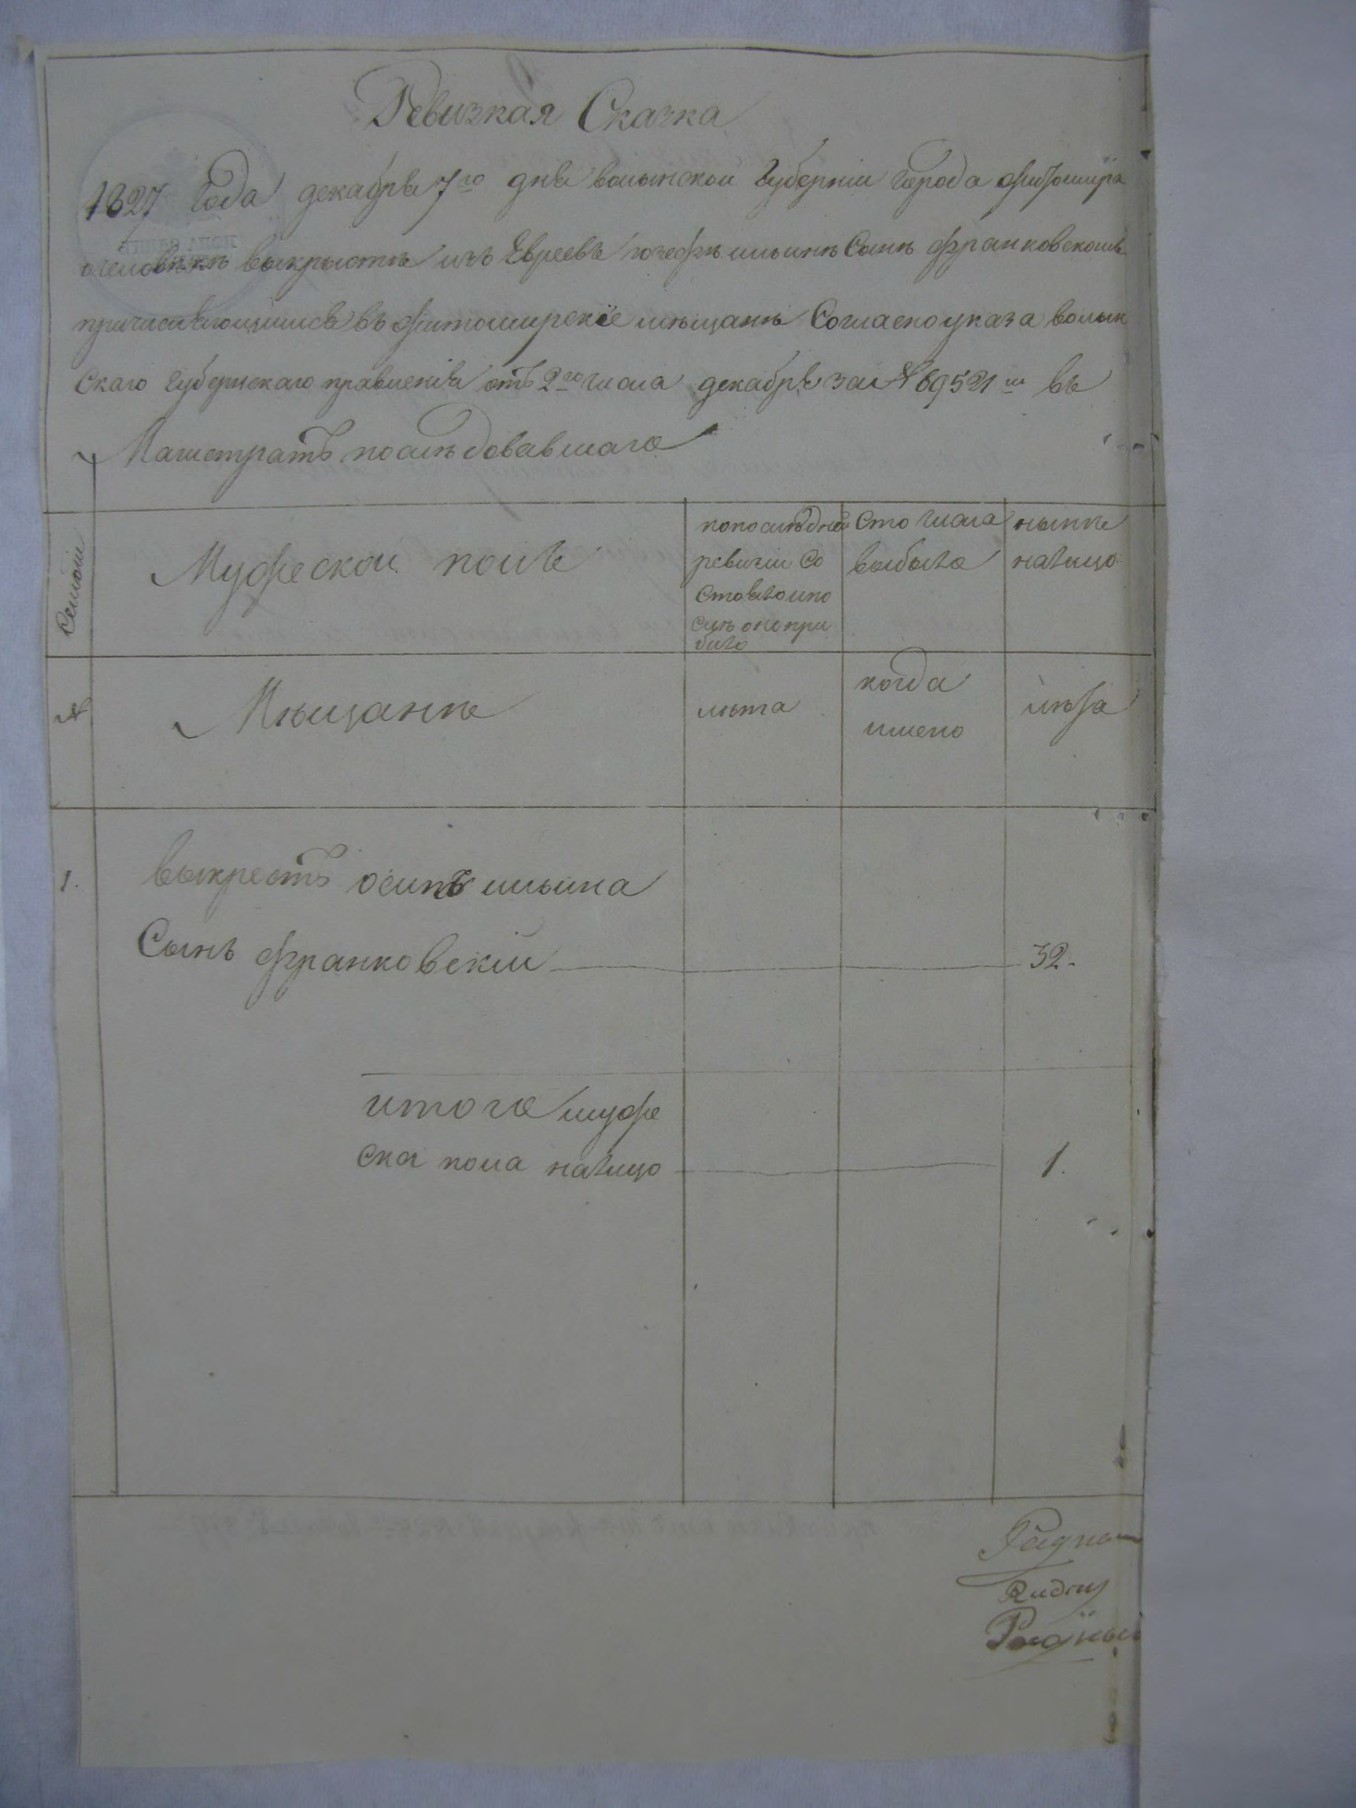 Ревизкая Сказка
1827 Года декабря 7го дня волынской Губернїи Города Житомира
о человѣкѣ выкрыстѣ изъ Евреевъ Іозефѣ ильинѣ Сынѣ Франковскомъ
причисляющимся въ житомирскїе мѣщанѣ Согласно указа волын
Скаго Губернскаго правленїя отъ 2го числа декабря за № 69521м въ
Магистратъ последовавшаго
Семьи
Мужеской полъ
попоследней
ревизїи Со
Стояло и по
слѣ оне при
было
Сто числа
выбыло
нынѣ
налицо
№
Мѣщанѣ
лѣта
когда
имено
лѣта
1.
выкрестъ осипъ ильина
Сынъ Франковскїй
32.
итого муже
ска пола налицо
1.